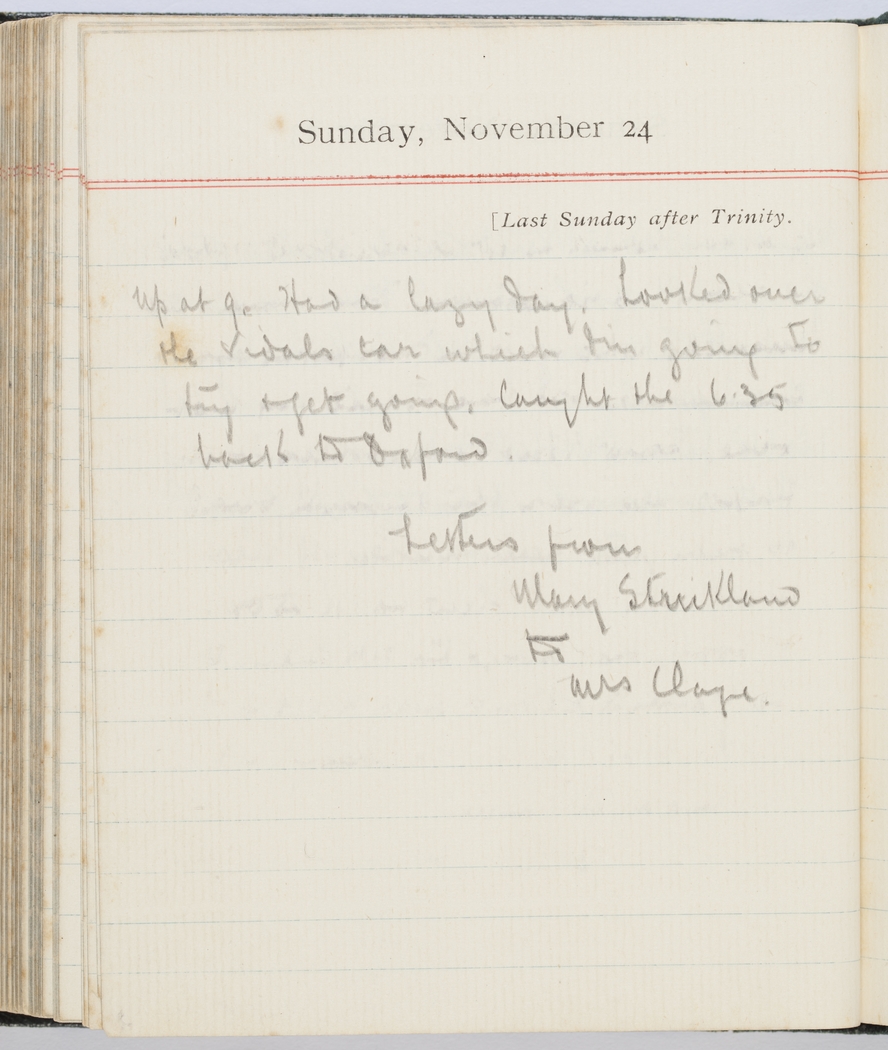 Sunday, November 24
[Last Sunday after Trinity.
Up at 9. Had a lazy day. Looked over
the Vidals car which I'm going to
try & get going. Caught the 6.35
back to Oxford.
Letters from
Mary Strickland
to
Mrs